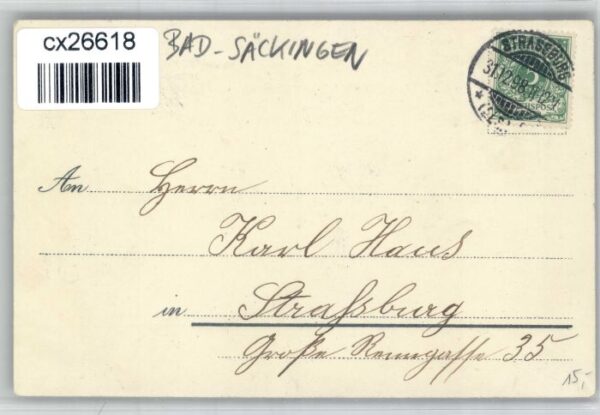 cx26618
BAD-SÄCKINGEN
STRASSBURG
31.12.98.
An Herrn
Karl Haus
in Straßburg
Große Renngasse 35
15,-